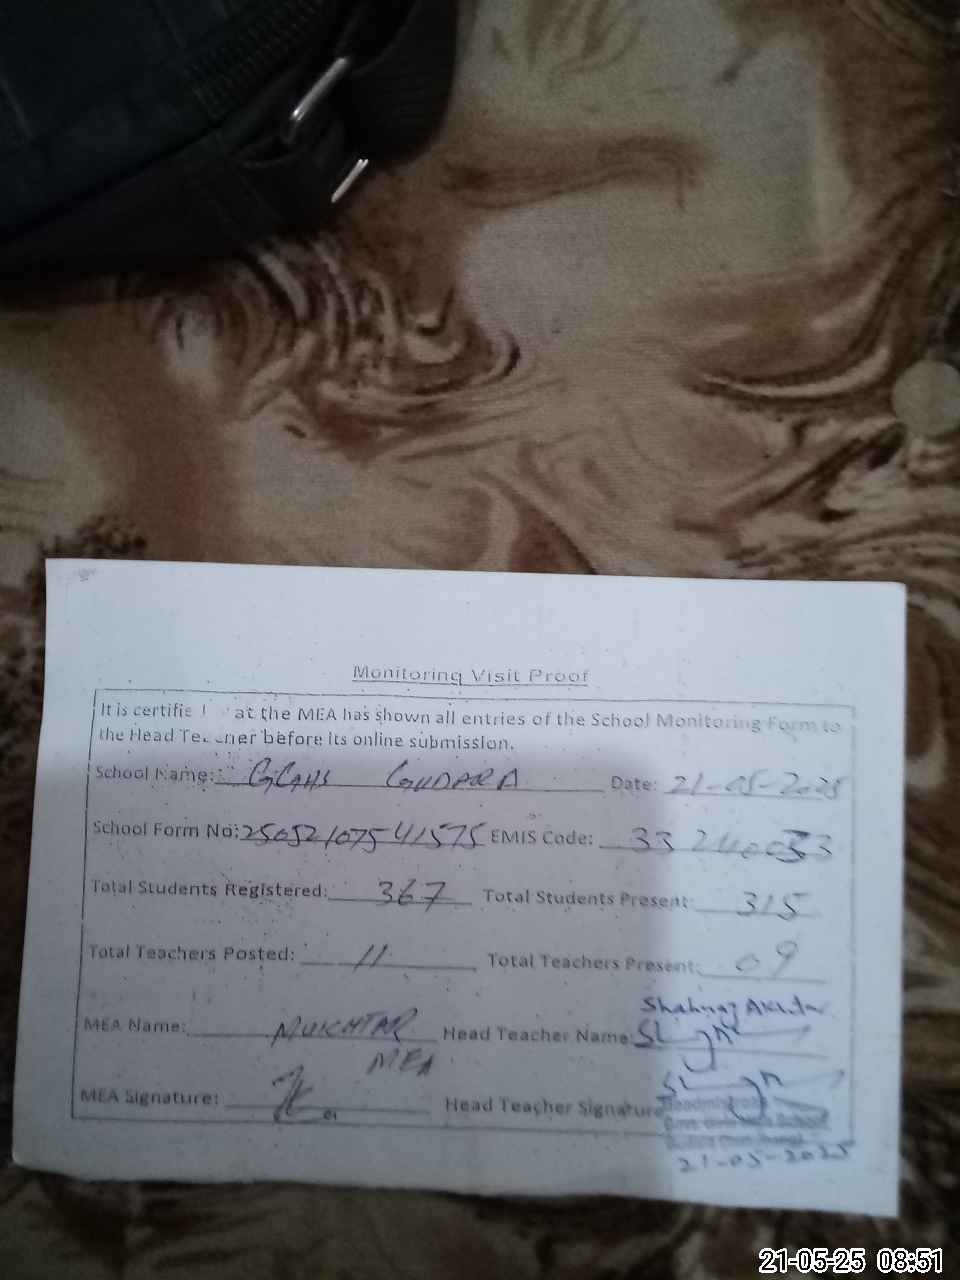 Monitoring Visit Proof
It is certifie at the MEA has shown all entries of the School Monitoring Form to
the Head Teacher before its online submission.
School Name: GGHS Date: 21-05-2025
School Form No: 25052107541575 EMIS Code: 33240033
Total Students Registered: 367 Total Students Present: 315
Total Teachers Posted: 11 Total Teachers Present: 09
Shahnaz Akhtar
MEA Name: MUKHTAR Head Teacher Name:
MEA
MEA Signature: Head Teacher Signature
21-05-2025
21-05-25 08:51